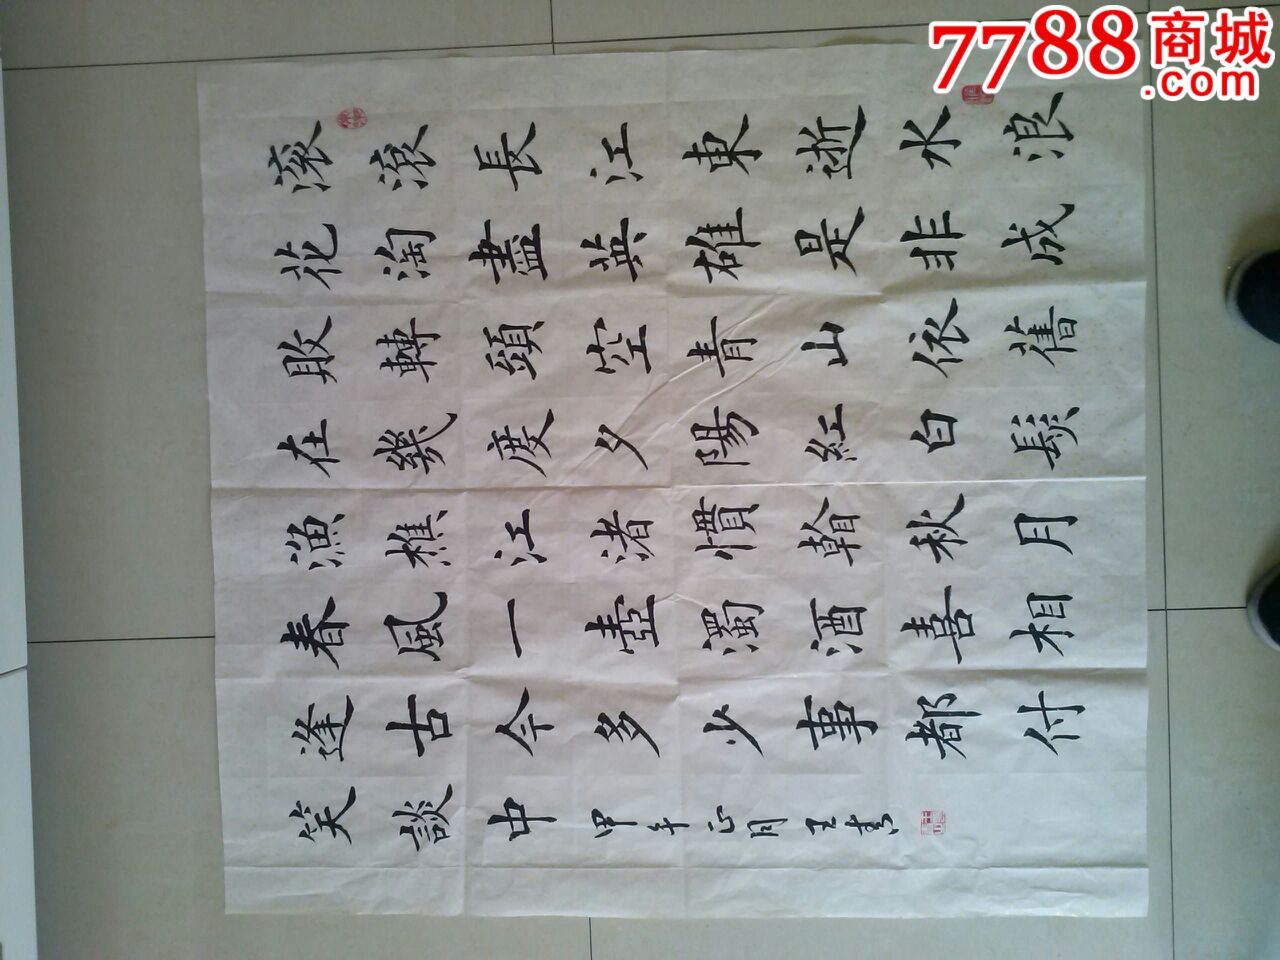 滚滚長江東逝水浪
花淘盡英雄是非成
敗轉頭空青山依舊
在幾度夕陽紅白髮
漁樵江渚慣看秋月
春風一壺濁酒喜相
逢古今多少事都付
笑談中
甲午正月王
7788商城
.com